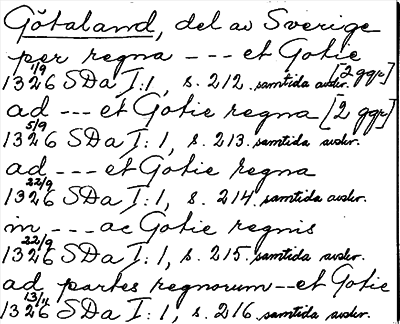 Götaland, del av Sverige
per regna --- et Gotie
1326 1/9 SDa I:1, s. 212. samtida avskr. [2 ggr]
ad --- et Gotie regna [2 ggr]
1326 5/9 SDa I:1, s. 213. samtida avskr.
ad --- et Gotie regna
1326 22/9 SDa I:1, s. 214. samtida avskr.
in --- ac Gotie regnis
1326 22/9 SDa I:1, s. 215. samtida avskr.
ad partes regnorum -- et Gotie
1326 13/11 SDa I:1, s. 216. samtida avskr.